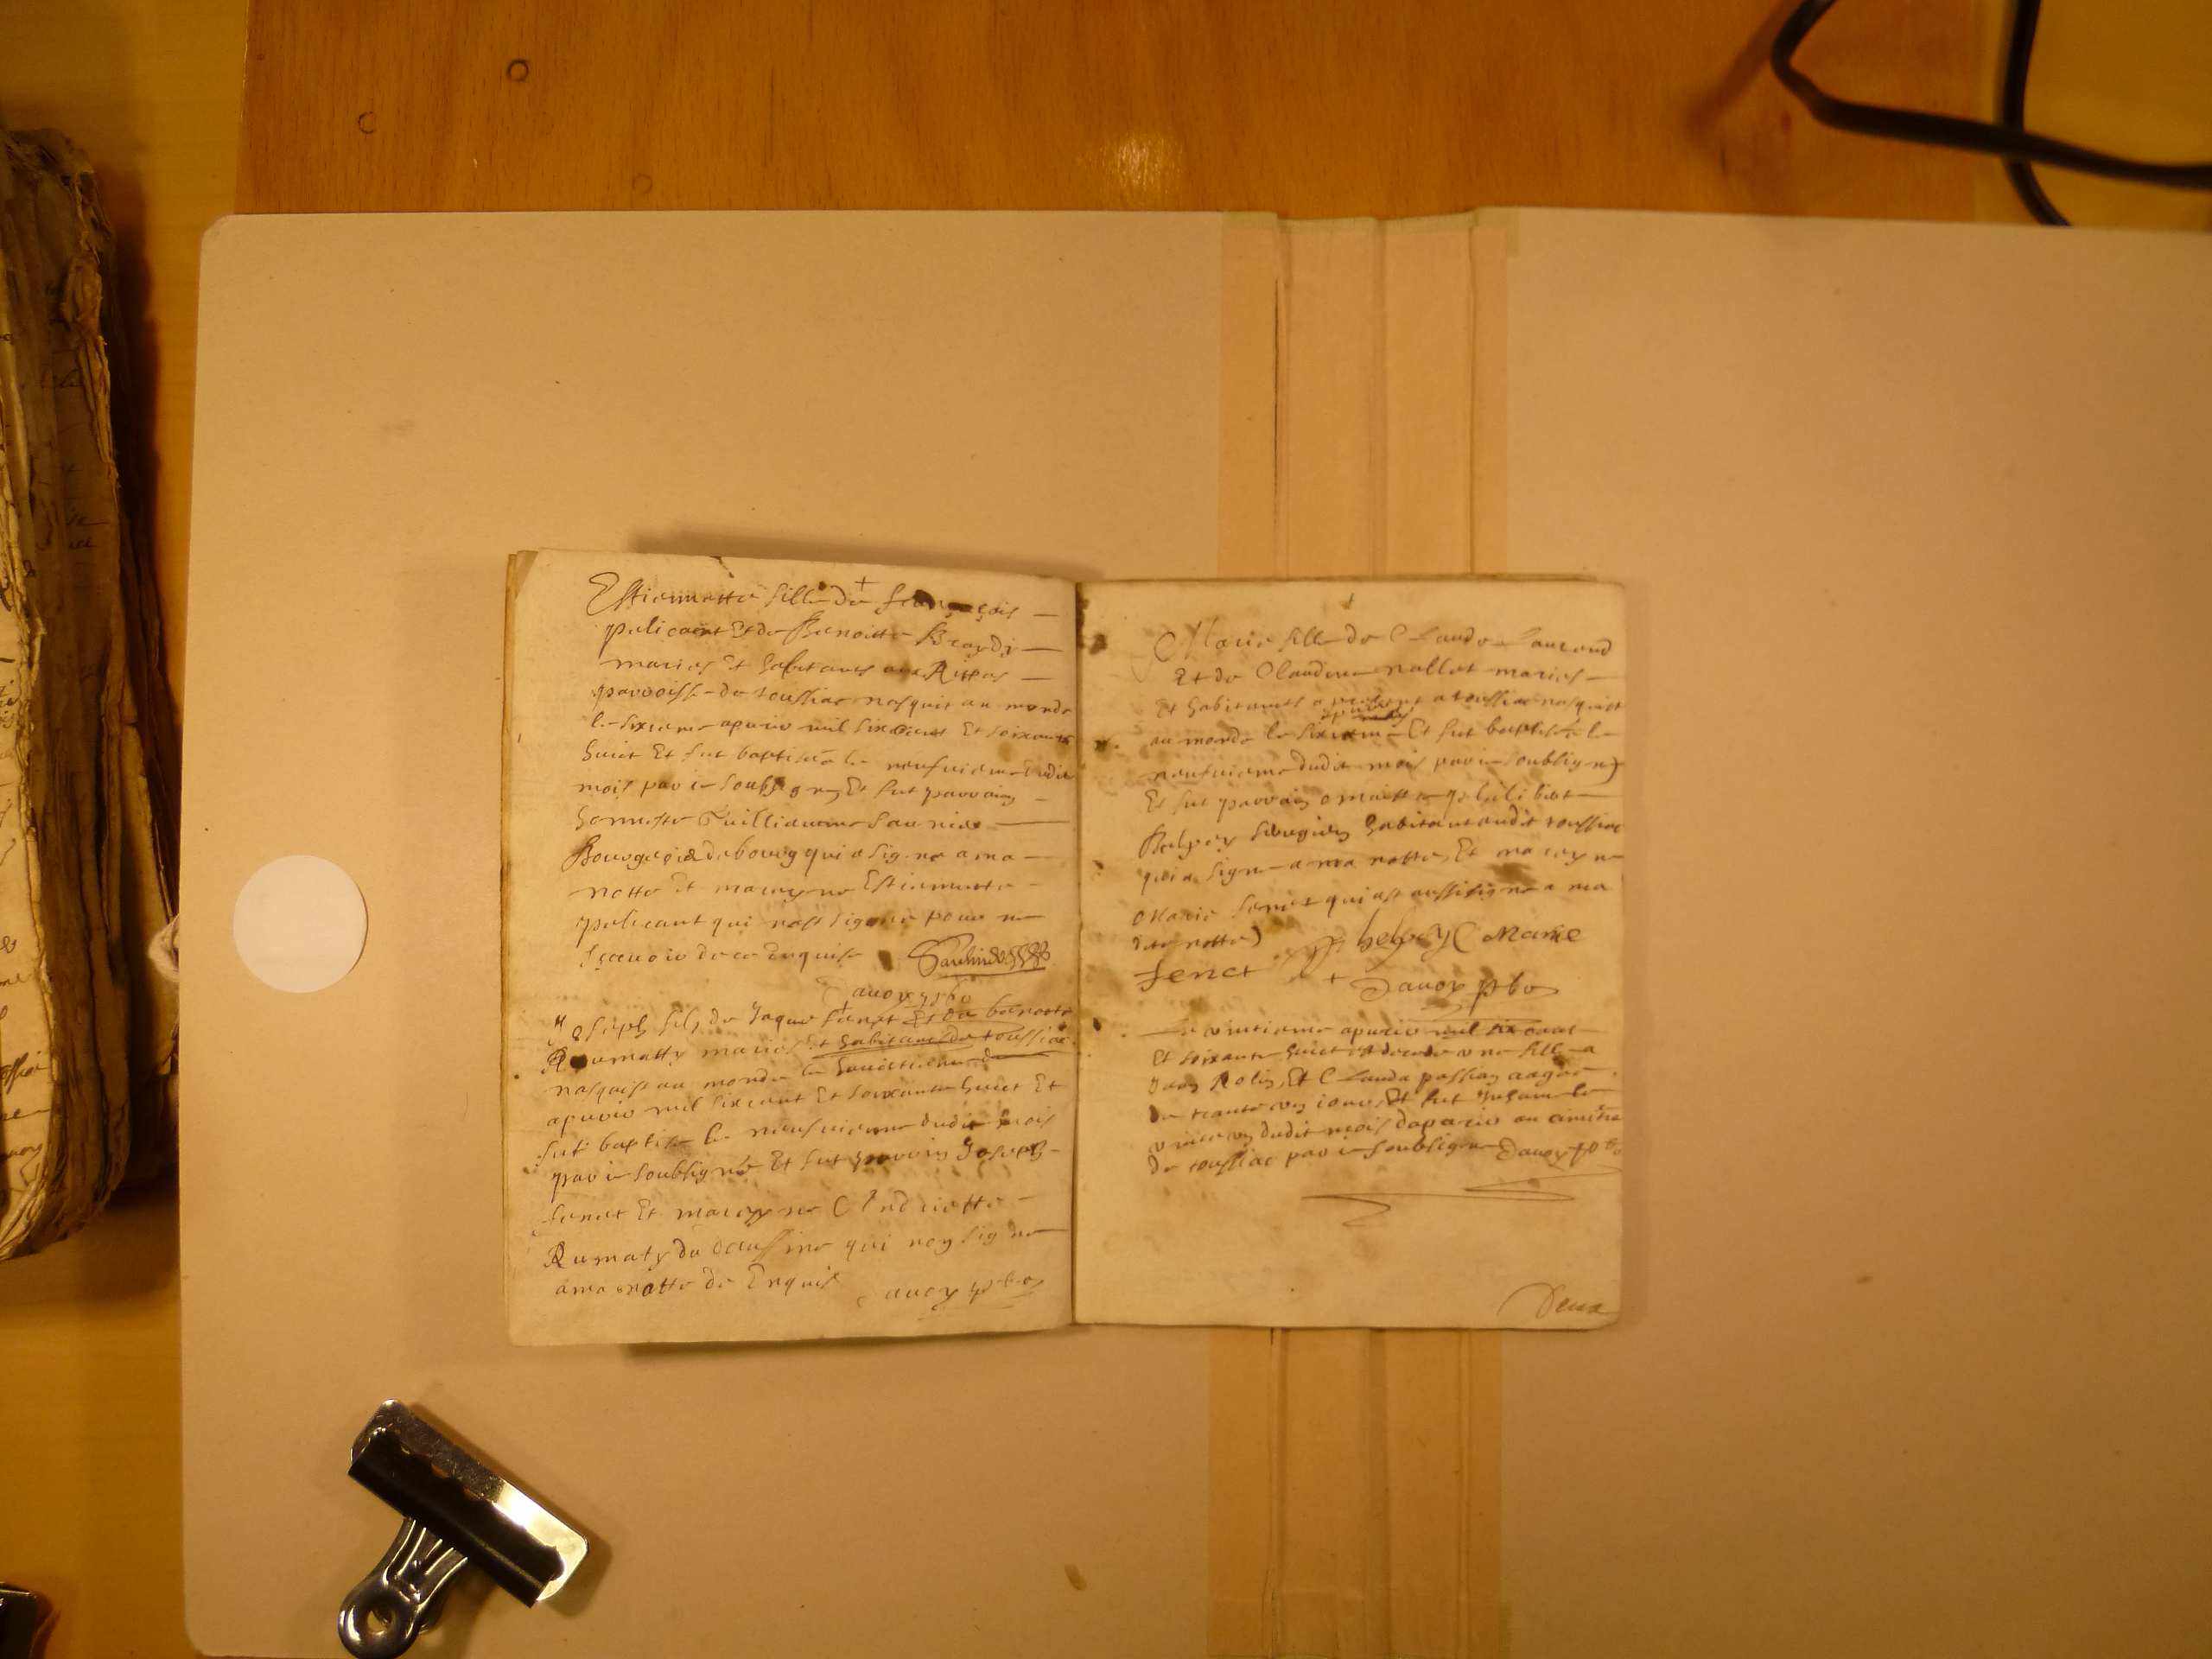 Estiennette fille de françois
pelicant Et de Benoitte Brajdy
maries et habitans aux Rippes
parroisse de toussiac nasquit au monde
le sixieme apvril mil six cent Et soixante
huict Et fut baptisée le neufvieme dudit
mois par ie soubsigné Et fut parrain
honneste Guilliaume saunier
Bourgeois de bourg qui a signe a ma
notte et marreyne Estiennette
pelicant qui nest signee pour ne
sçavoir de ce Enquise
Davoy pbr
Joseph fils de Jaque fenet Et de benoote
Rumatty maries Et habitans de toussiac
nasquist au monde le huictieme du
apvril mil six cent Et soixante huict Et
fut baptise le neufvieme dudit mois
par ie soubsigné Et fut parrin Joseph
fenet Et marreyne Claudiotte
Rumaty de qui non signe
a ma notte de Enquis Davoy pbr
Marie fille de Claude Laurend
Et de Claudine nallet maries
Et habitants a present a toussiac nasquist
apvril
au monde le sixieme Et fut baptisée le
neufvieme dudit mois par ie soubsigné
Et fut parrain maitre philibert
Belpey habitant audit toussiac
qui a signe a ma notte, Et marreyne
Marie fenet qui est aussi signe a ma
ditte notte P belpey Marie
fenet Davoy pbr
Le vintieme apvril mil six cent
Et soixante huict est decede une fille a
Jean Rolin, Et Clauda passian aagée
de trante un iour, Et fut Inhumée le
vint un dudit mois dapvril au cimitiere
de toussiac par ie soubsigne Davoy pbr
Deux